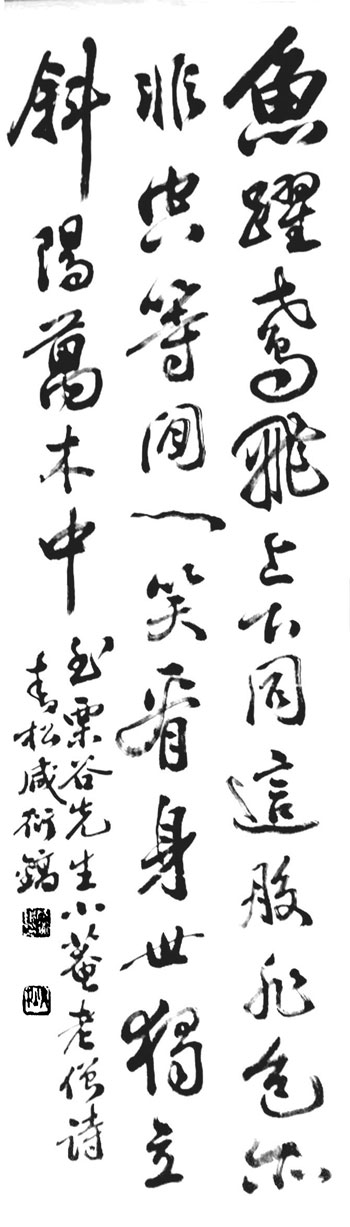 魚躍鳶飛上下同這般非色亦
非空等閒一笑看身世獨立
斜陽萬木中
栗谷先生小菴老僧詩
青松咸衍鎬